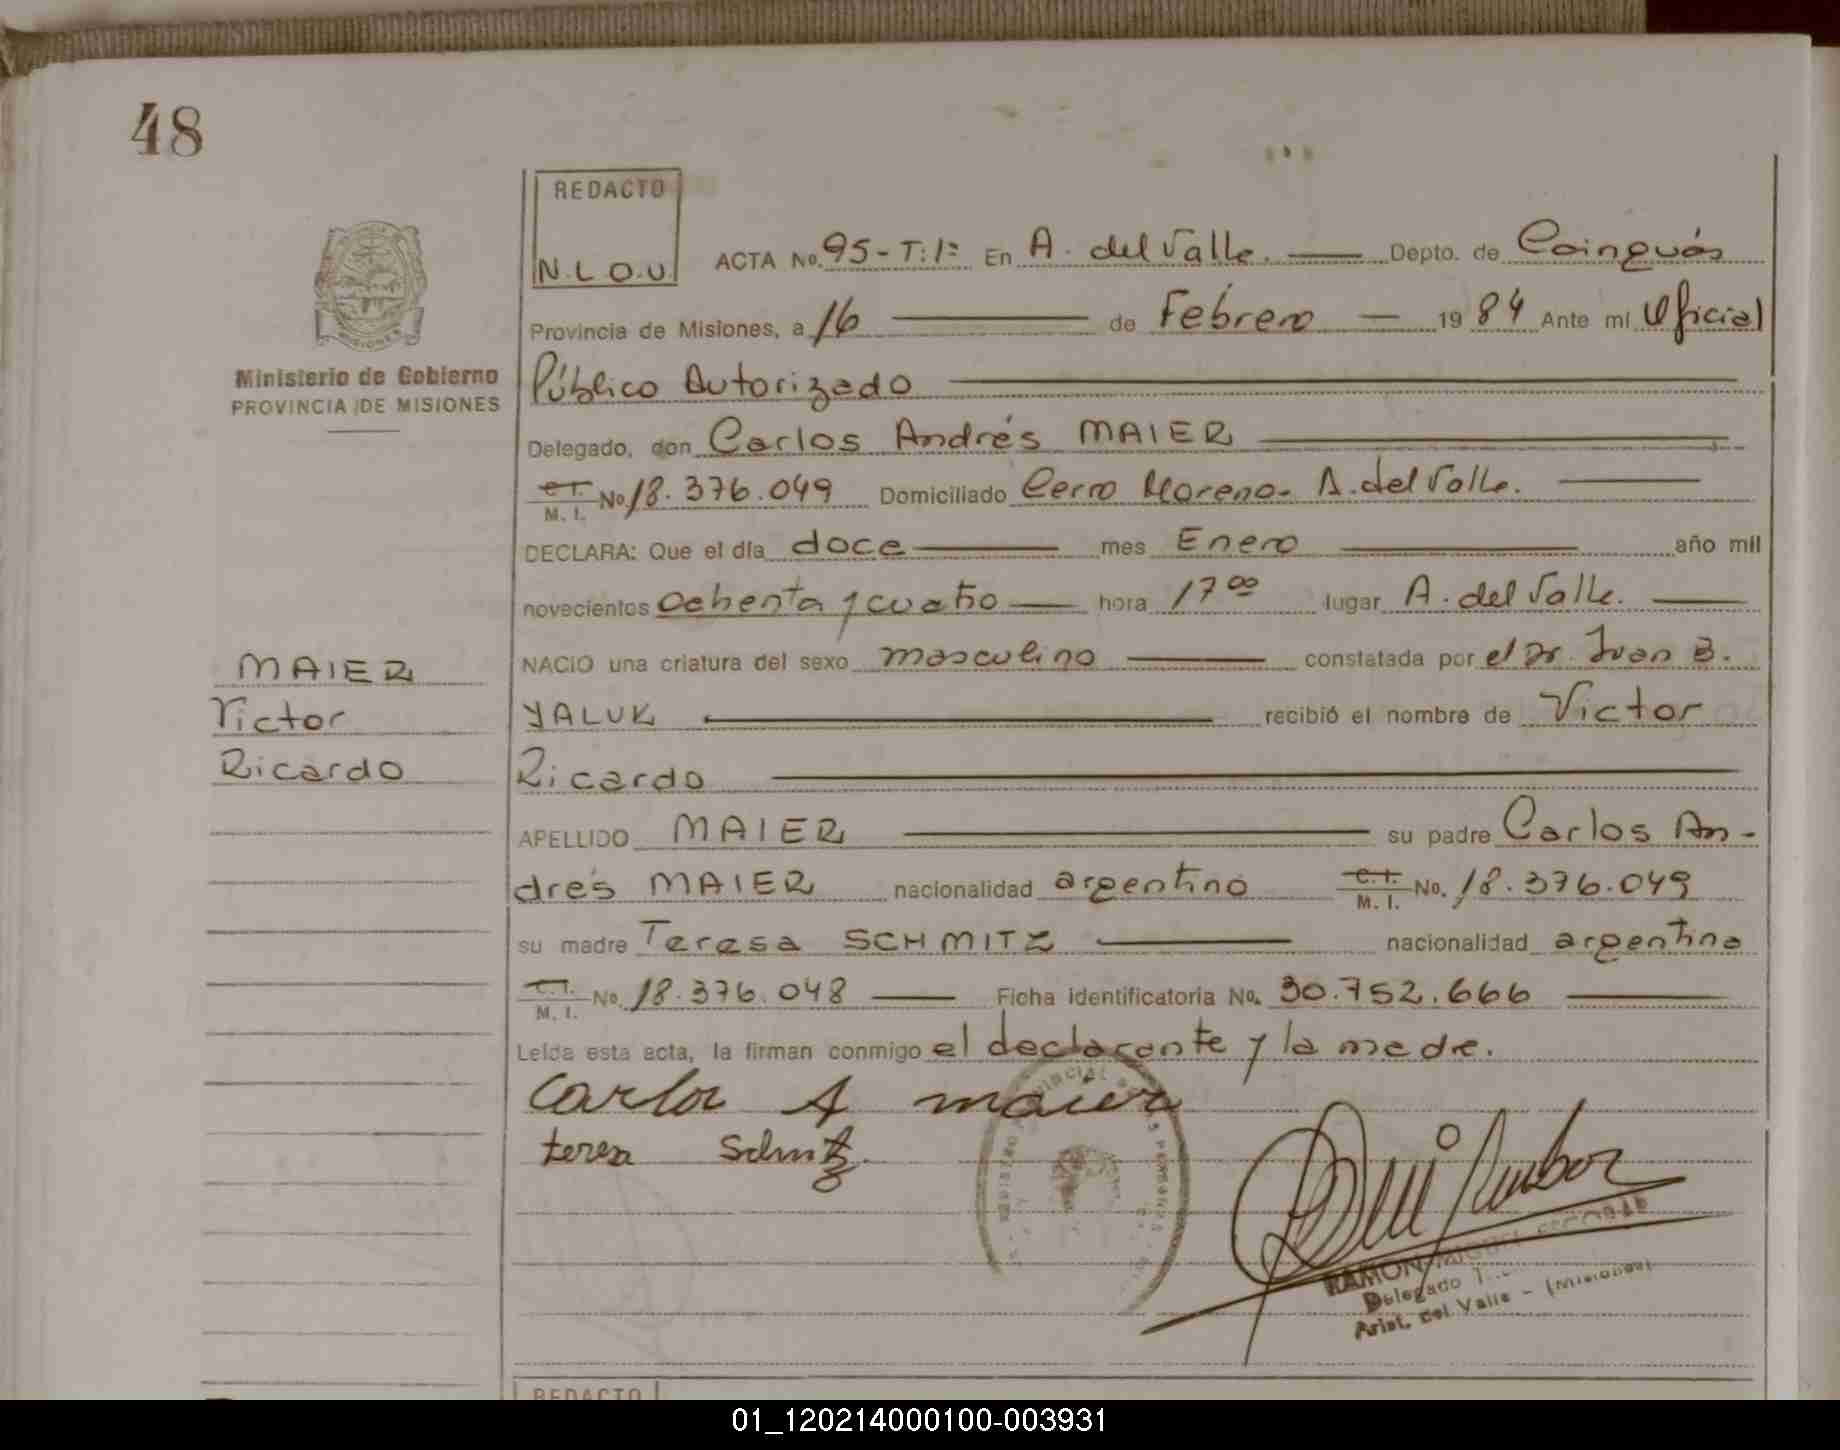 48
REDACTO
N.L.O.U.
ACTA No. 95-T:1º En A. del Valle. Depto. de Cainguás
Provincia de Misiones, a 16 de Febrero 1984 Ante mí Oficial
Ministerio de Gobierno
PROVINCIA DE MISIONES
Público Autorizado
Delegado, don Carlos Andrés MAIER
C.I. M. I. No. 18.376.049 Domiciliado Cerro Moreno - A. del Valle.
DECLARA: Que el día doce mes Enero año mil
novecientos ochenta y cuatro hora 17⁰⁰ lugar A. del Valle.
MAIER
Victor
Ricardo
NACIO una criatura del sexo masculino constatada por el Dr. Juan B.
YALUK recibió el nombre de Victor
Ricardo
APELLIDO MAIER su padre Carlos An-
drés MAIER nacionalidad argentino C.I. M. I. No. 18.376.049
su madre Teresa SCHMITZ nacionalidad argentina
C.I. M. I. No. 18.376.048 Ficha identificatoria No. 30.752.666
Leída esta acta, la firman conmigo el declarante y la madre.
Carlos A maier
teresa Schmitz
RAMON MIGUEL ESCOBAR
Delegado
Arist. del Valle - (Misiones)
REDACTO
01_120214000100-003931